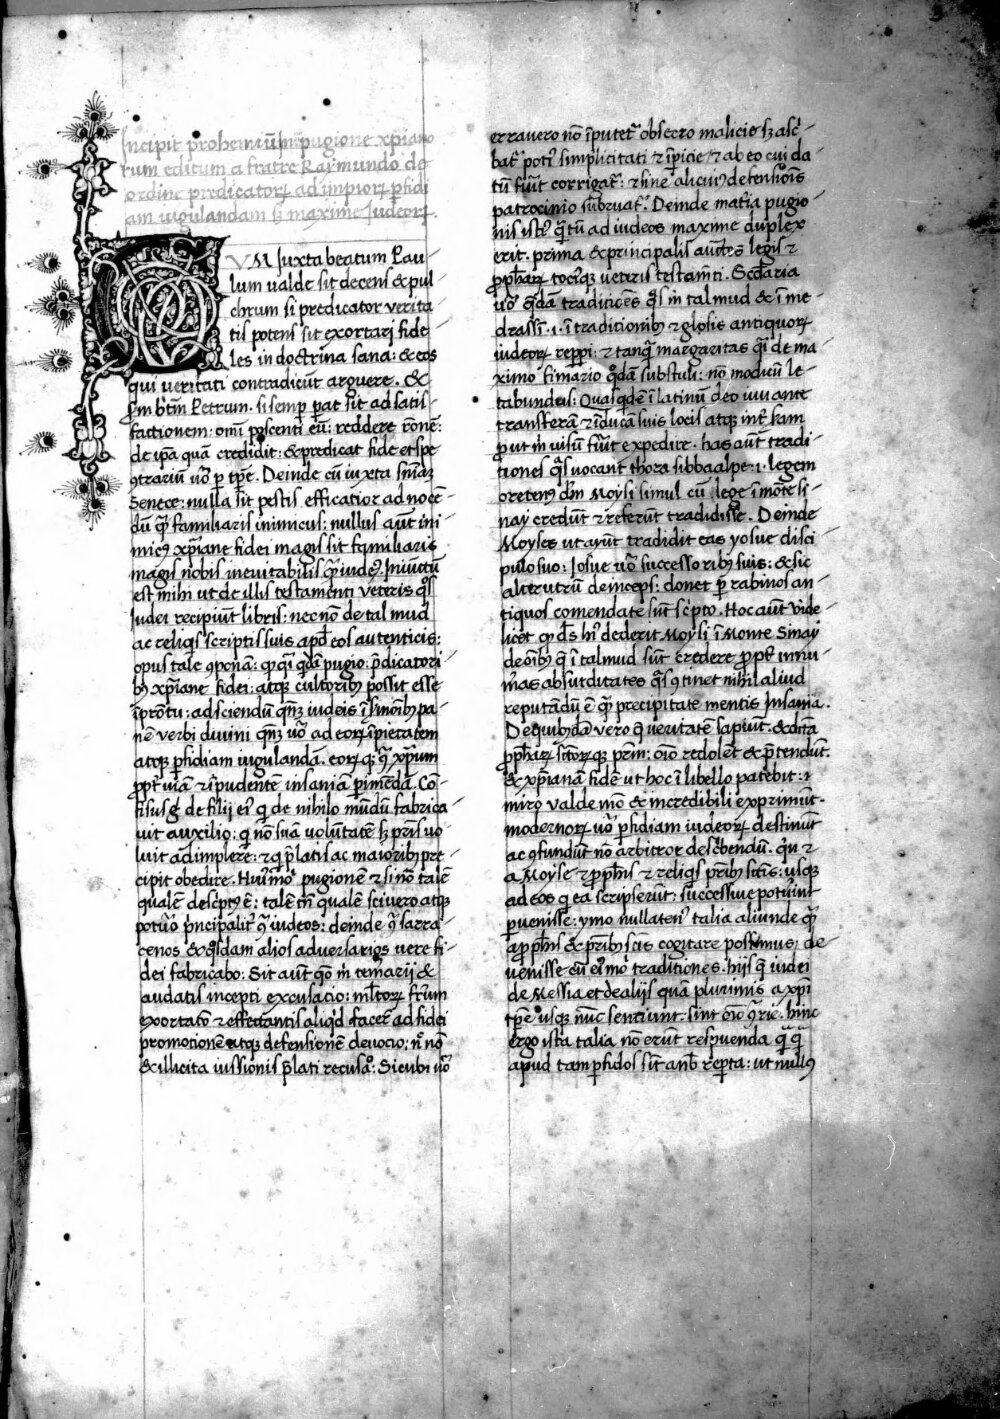 Incipit prohemiũ in pugione xpiano
rum editum a fratre Raymundo de
ordine predicatorꝝ ad impiorꝝ ꝑfidi
am iugulandam sꝫ maxime Iudeorꝝ.
CVM Iuxta beatum Pau-
lum valde sit decens & pul
chrum si predicator verita
tis potens sit exortari fide-
les in doctrina sana: & eos
qui veritati contradicũt arguere. &
ẜm btm̃ Petrum. si semꝑ ꝑat9 sit ad satis
factionem omĩ poscenti eũ: reddere rõnẽ:
de ip̃a quã credidit: & predicat fide et spe
ꝯtrariũ v̾o ꝑ tp̃e. Deinde cũ iuxta sñiaꝫ
Senece: nulla sit pestis efficatior ad nocẽ-
dũ q̃ familiaris inimicus: nullus aũt ini-
mic9 xp̃iane fidei magis sit familiaris
magis nobis ineuitabilis q̃ iude9. Iniũctũ
est mihi ut de illis testamenti veteris q̊s
Iudei recipiũt libris: necnõ de talmud
ac reliq̾s scriptis suis apd̾ eos autenticis:
opus tale ꝯponã: qd̾ q̃i q̾dã pugio: p̃dicatori-
bꝫ xp̃iane fidei: atqꝫ cultoribꝫ possit esse
ĩ prõtu: ad sciendũ qñqꝫ iudeis ĩ s̃monibꝫ pa-
nẽ verbi diuini qñqꝫ v̾o ad eorꝝ ĩpietatem
atqꝫ ꝑfidiam iugulandã. eorꝝqꝫ ꝯ̃ xp̃um
ꝓpt̾ uiã & ĩpudentẽ insaniã ꝑimẽdã. Con-
fisus g̊ de filij ei9 q̾ de nihilo mũdũ fabrica-
uit auxilio: q̾ nõ suã volũtatẽ sꝫ pr̃is vo-
luit adimplere: & q̾ p̃latis ac maioribꝫ pre-
cipit obedire. Hui9mõi pugionẽ & si nõ talẽ
qualẽ descpt9 ẽ: talẽ tñ qualẽ sciuero atqꝫ
potuo pncipalit̾ ꝯ̃ iudeos: deinde ꝯ̃ sarra
cenos & q̊sdam alios aduersarios vere fi-
dei fabricabo: Sit aũt q̊ m̾ temarij &
audatis incepti excusacio: mltorꝝ fr̃um
exortatõ & effectantis aliqd̾ facer̾ ad fidei
promotionẽ atqꝫ defensionẽ deuocio: ñ nõ
& illicita iussionis p̃lati recusãõ: Sicubi v̾o
erravero nõ ĩputet̾ obsecro malicie sꝫ asc̾-
bat̾ poti9 simplicitati & ĩpicie & ab eo cui da-
tũ fũit corrigat̾: & sine alicui9 defensiõis
patrocinio subruat̾. Deinde mat̾ia pugio-
nis isti9 q̃tũ ad iudeos maxime duplex
erit. prima & principalis auct̾es legis &
ꝓph̃arꝝ toci9qꝫ veteris testam̃ti. Scd̾aria
v̾o q̾dã traditiões q̃s in talmud & i me-
drassĩ .i. ĩ traditionibꝫ & glosis antiquorꝝ
iudeorꝝ reppi: & tanq̃ margaritas q̃i de ma-
ximo fimario q̊dã substuli: nõ modicũ le-
tabundus: Quasq̾dẽ ĩ latinũ deo iuuante
transferã & ĩducã suis locis atqꝫ inf̾ ram
ꝓut m̾ uisũ fũit expedire. has aũt tradi-
tiones q̃s vocant thora sibbaalpe .i. legem
oretenus dñm Moysi simul cũ lege ĩ mõte si-
nay credũt & referũt tradidisse. Deinde
Moyses ut aiũt tradidit eas yosue disci
pulo suo: Iosue v̾o successoribꝫ suis: & sic
alterutrũ deinceps: donec ꝑ rabinos an-
tiquos comendate sũt scpto. Hoc aũt vide-
licet qd̾ d̾s h9 dederit Moysi ĩ Monte Sinay
de õibꝫ q̃ ĩ talmud sũt credere ꝓpt̾ innu-
m̾as absurditates q̃s ꝯtinet nihil aliud
reputãdũ ẽ q̃ precipitate mentis Insania.
De quibꝫdã vero q̃ veritatẽ sapiunt. & dictã
ꝓph̃arꝝ sctõrꝝqꝫ prĩm: oĩo redolẽt & p̃tendunt.
& xp̃ianã fidẽ ut hoc ĩ libello patebit: ĩ
miro valde mõ & incredibili exprimũt.
modernorꝝ v̾o ꝑfidiam iudeorꝝ destruũt
ac ꝯfundunt nõ arbitror desꝑendũ. qñ &
a Moyse & ꝓph̾is & reliq̾s pr̃ibꝫ sctĩs: usqꝫ
ad eos q̾ ea scripserũt: successiue potuĩt
ꝑvenisse: ymo nullaten9 talia aliunde q̃
a ꝓph̾is & pr̃ibꝫ scĩs cogitare possumus: de-
venisse cũ ei9mõi traditiones. hijs q̃ iudei
de Messia et de alijs quã plurimis a xp̃i
tp̃e usqꝫ nũc sentiunt. sint oĩo ꝯrie. hinc
ergo ista talia nõ erũt respuenda q̃q̃
apud tam ꝑfidos sĩt a nb̾ reꝑta: ut nullus